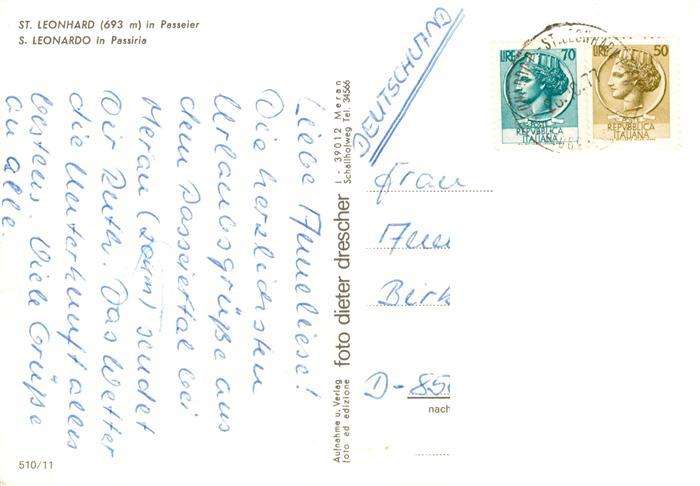 ST. LEONHARD (693 m) in Passeier
S. LEONARDO in Passiria
Liebe Anneliese!
Die herzlichsten
Urlaubsgrüße aus
dem Passeiertal bei
Meran (20km) sendet
Dir Ruth. Das Wetter
die Unterkunft alles
bestens. Viele Grüße
an alle.
510/11
Aufnahme u. Verlag
foto ed edizione
foto dieter drescher
I - 39012 Meran
Schallhofweg Tel. 34566
DEUTSCHLAND
LIRE 70
POSTE
REPVBBLICA
ITALIANA
LIRE 50
POSTE
REPVBBLICA
ITALIANA
ST. LEONHARD
Frau
Anne
Birk
D-85
nach